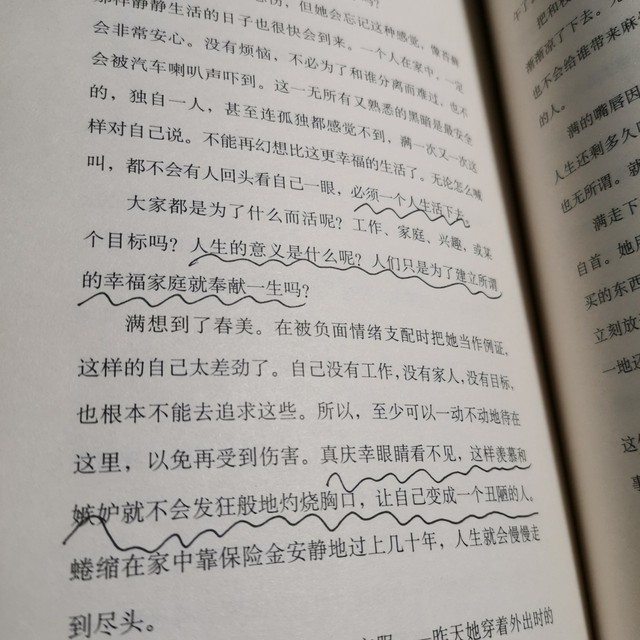 那样静静生活的日子也很快会到来。一个人在家中，一定
会非常安心。没有烦恼，不必为了和谁分离而难过，也不
会被汽车喇叭声吓到。这一无所有又熟悉的黑暗是最安全
的，独自一人，甚至连孤独都感觉不到，满一次又一次这
样对自己说。不能再幻想比这更幸福的生活了。无论怎么喊
叫，都不会有人回头看自己一眼，必须一个人生活下去。
大家都是为了什么而活呢？工作、家庭、兴趣，或某
个目标吗？人生的意义是什么呢？人们只是为了建立所谓
的幸福家庭就奉献一生吗？
满想到了春美。在被负面情绪支配时把她当作例证，
这样的自己太差劲了。自己没有工作，没有家人，没有目标，
也根本不能去追求这些。所以，至少可以一动不动地待在
这里，以免再受到伤害。真庆幸眼睛看不见，这样羡慕和
嫉妒就不会发狂般地灼烧胸口，让自己变成一个丑陋的人。
蜷缩在家中靠保险金安静地过上几十年，人生就会慢慢走
到尽头。
昨天她穿着外出时的
把和
渐渐凉了下去。
也不会给谁带来麻
的人。
满的嘴唇因
人生还剩多久
也无所谓。就
满走下
自首。她
买的东西
立刻放
一地
这